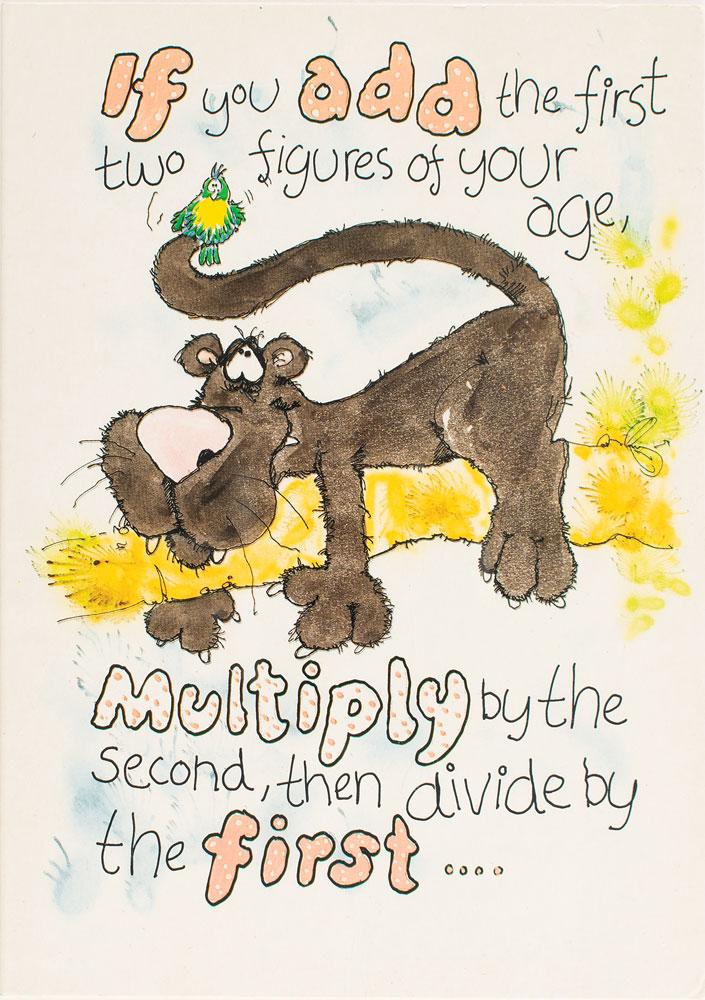 If you add the first
two figures of your
age,
Multiply by the
second, then divide by
the first ....